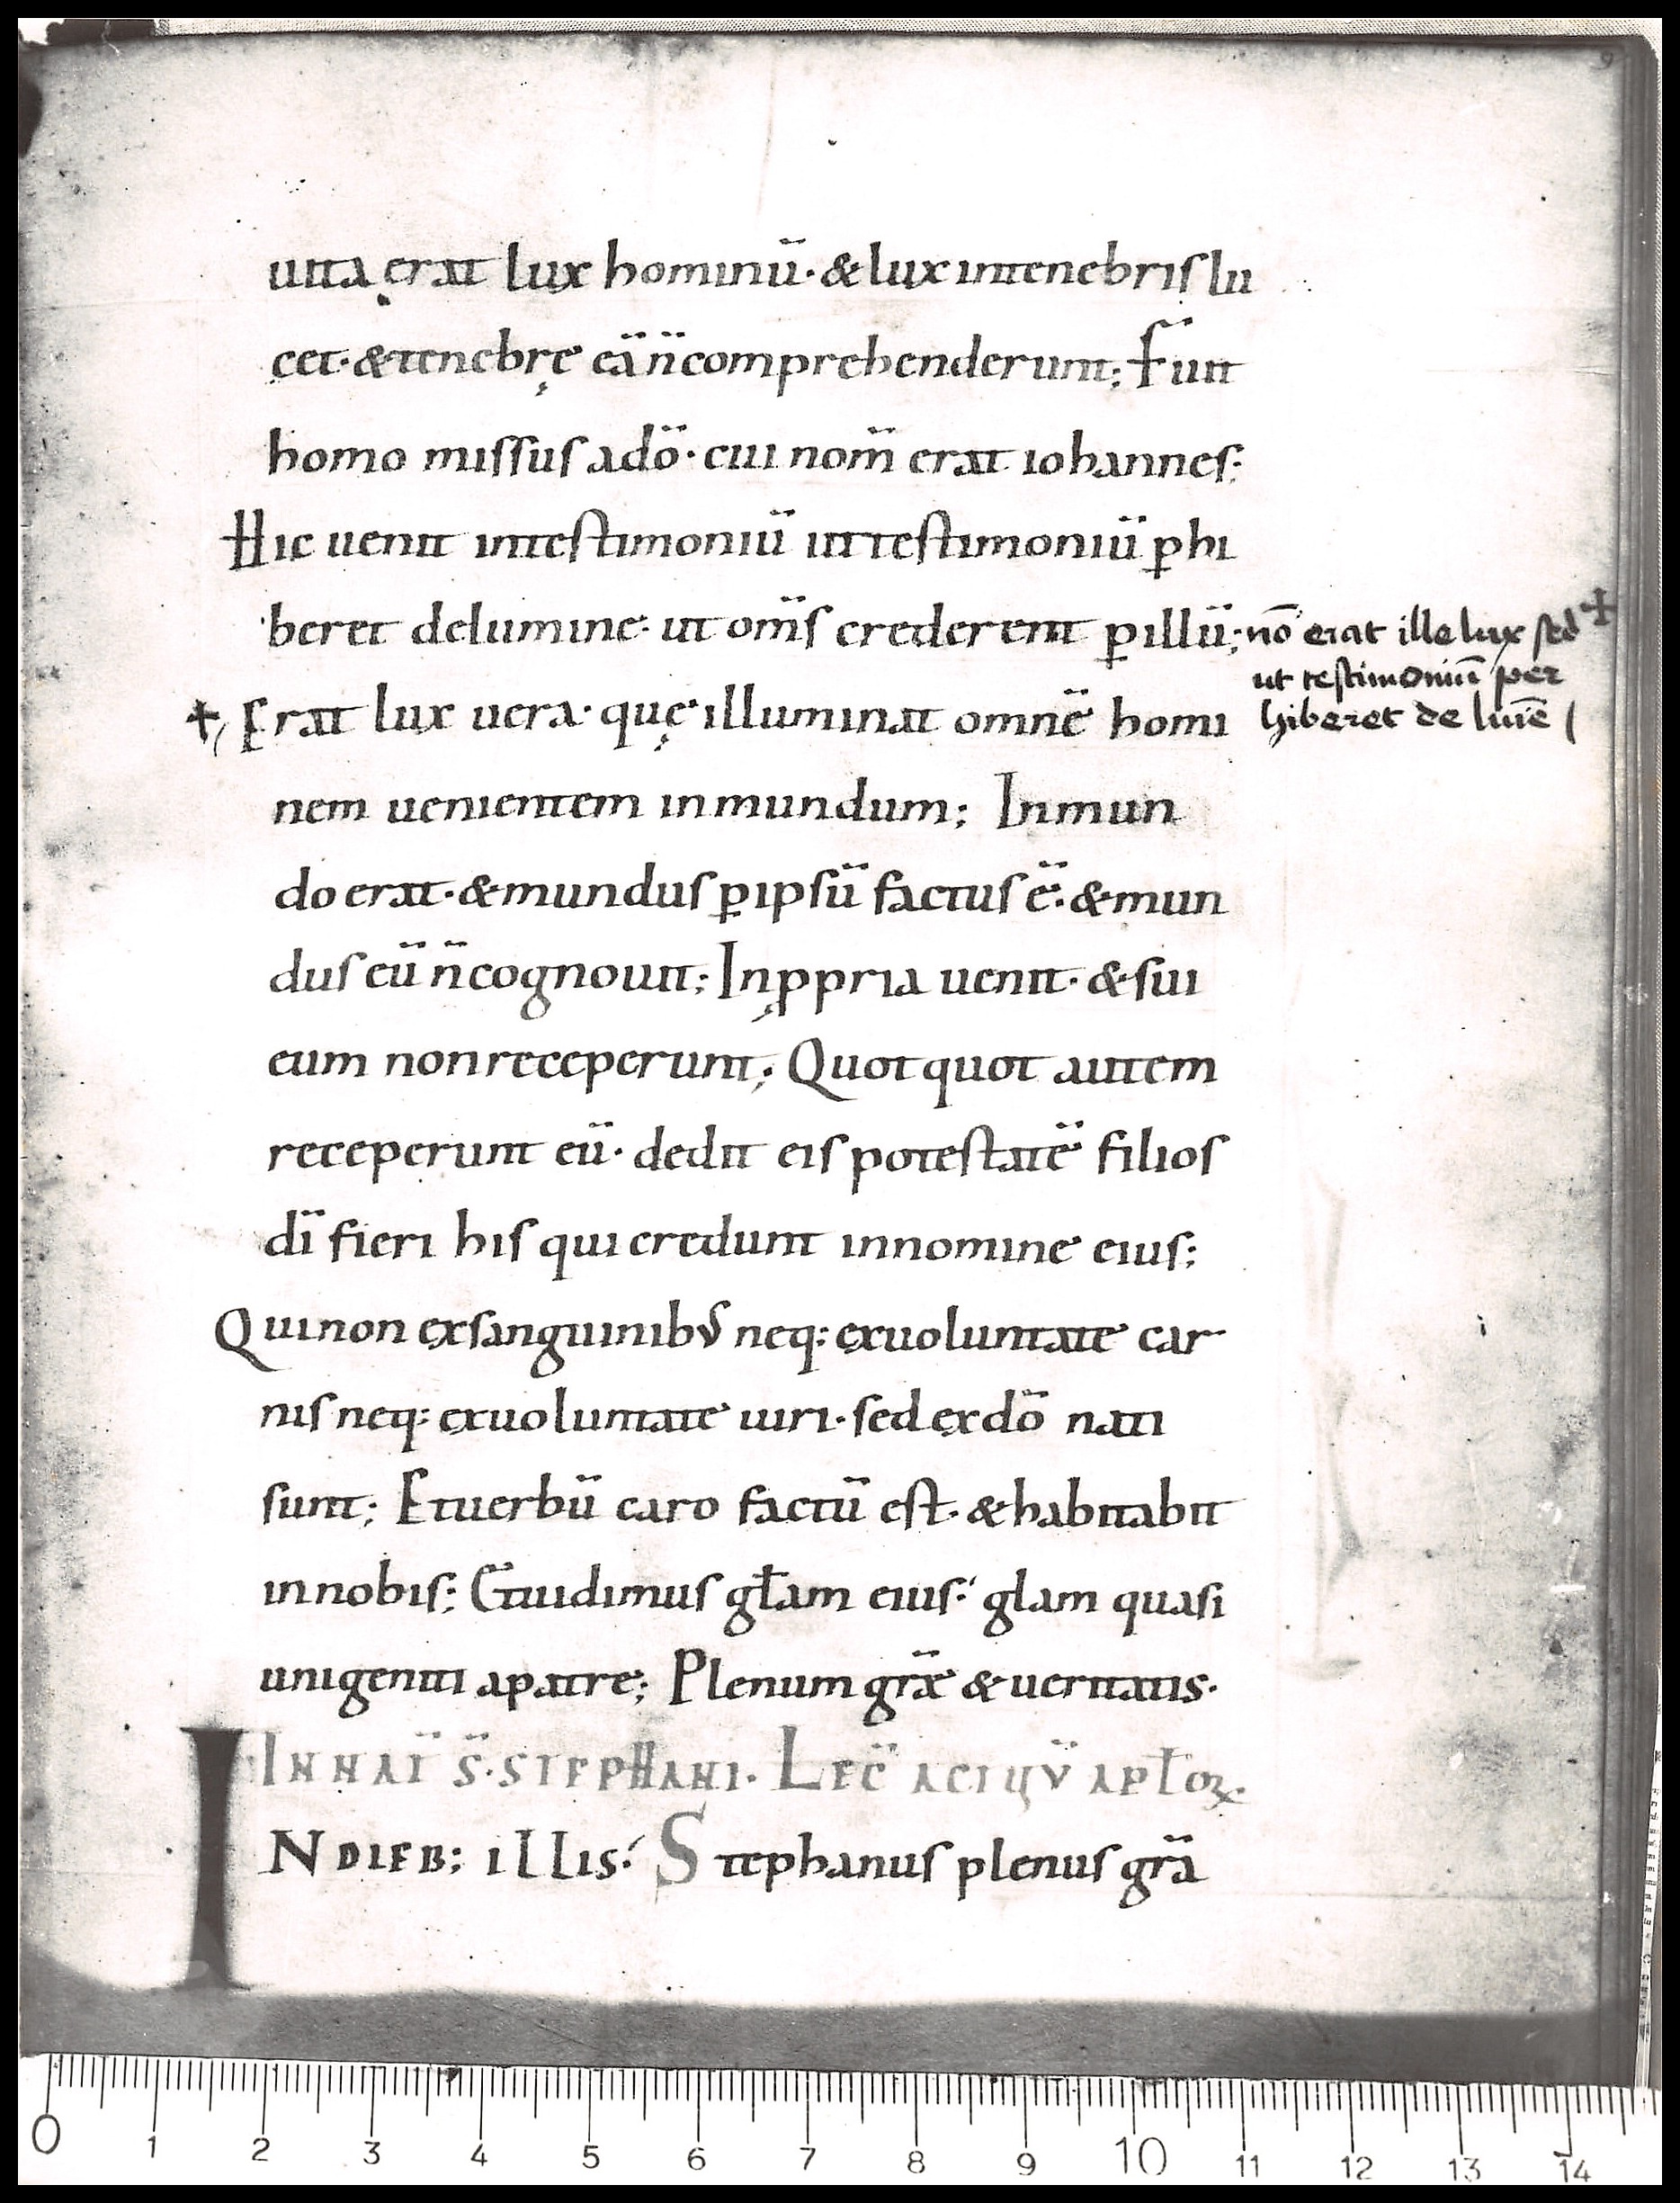 uita erat lux hominū· & lux intenebris lu
cet· & tenebrę eā n̄ comprehenderunt; Fuit
homo missus adō· cui nom̄ erat iohannes;
Hic uenit intestimoniū ut testimoniū ꝑhi
beret delumine· ut om̄s crederent ꝑillū; nō erat ille lux sed ✝
ut testimoniū per
hiberet de lum̄e
✝ Erat lux uera· quę illuminat omnē homi
nem uenientem inmundum; Inmun
do erat· & mundus ꝑipsū factus ē· & mun
dus eū n̄ cognouit; Inꝓpria uenit· & sui
eum nonreceperunt; Quotquot autem
receperunt eū· dedit eis potestatē filios
dī fieri his qui credunt innomine eius;
Quinon exsanguinibus neq; exuoluntate car
nis neq; exuoluntate uiri· sed exdō nati
sunt; Etuerbū caro factū est· & habitabit
innobis; Etuidimus gła̅m eius; glam quasi
unigeniti apatre; Plenum græ̅ & ueritatis·
INNAT̄ S̄· STEPHANI· LEC̄ ACTUŪ APŁOꝜ·
INDIEB; illis· Stephanus plenus grā
0 1 2 3 4 5 6 7 8 9 10 11 12 13 14